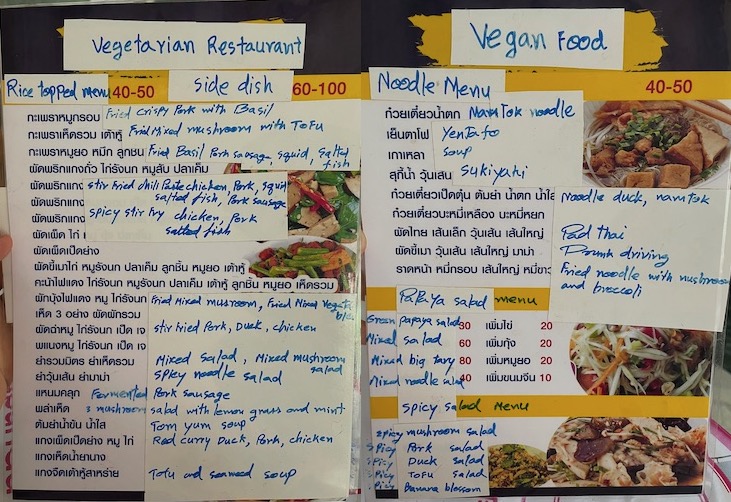 Vegetarian Restaurant
Rice topped menu 40-50 side dish 60-100
กะเพราหมูกรอบ Fried crispy Pork with Basil
กะเพราเห็ดรวม เต้าหู้ Fried Mixed mushroom with ToFu
กะเพราหมูยอ หมึก ลูกชน Fried Basil Pork sausage, squid, salted fish
ผัดพริกแกงถั่ว ไก่รังนก หมูสับ ปลาเค็ม
ผัดพริกแกง stir fried chili Paste chicken, Pork, squid
ผัดพริกแกง salted fish, Pork sausage
ผัดพริกแกง spicy stir fry chicken, Pork
ผัดเผ็ด ไก่ salted fish
ผัดเผ็ดเป็ดย่าง
ผัดขี้เมาไก่ หมูรังนก ปลาเค็ม ลูกชิ้น หมูยอ เต้าหู้
คะน้าไฟแดง ไก่รังนก หมูรังนก ปลาเค็ม เต้าหู้ ลูกชิ้น หมูยอ เห็ดรวม
ผักบุ้งไฟแดง หมู ไก่รังนก Fried Mixed musroom, Fried Mixed vegetables
เห็ด 3 อย่าง ผัดผักรวม
ผัดฉ่าหมู ไก่รังนก เป็ด เจ stir fried Pork, Duck, chicken
พแนงหมู ไก่รังนก เป็ด เจ
ยำรวมมิตร ยำเห็ดรวม Mixed Salad, Mixed mushroom salad
ยำวุ้นเส้น ยำมาม่า spicy noodle salad
แหนมคลุก Fermented Pork sausage
พล่าเห็ด 3 mushroom salad with lemon grass and mint
ต้มยำน้ำข้น น้ำใส Tom yum soup
แกงเผ็ดเป็ดย่าง หมู ไก่ Red curry Duck, Pork, chicken
แกงเห็ดน้ำยานาง
แกงจืดเต้าหู้สาหร่าย Tofu and seaweed soup
Vegan Food
Noodle Menu 40-50
ก๋วยเตี๋ยวน้ำตก NamTok noodle
เย็นตาโฟ YenTafo
เกาเหลา Soup
สุกี้น้ำ วุ้นเส้น Sukiyaki
ก๋วยเตี๋ยวเป็ดตุ๋น ต้มยำ น้ำตก น้ำใส Noodle duck, namtok
ก๋วยเตี๋ยวบะหมี่เหลือง บะหมี่หยก
ผัดไทย เส้นเล็ก วุ้นเส้น เส้นใหญ่ Pad thai
ผัดขี้เมา วุ้นเส้น เส้นใหญ่ มาม่า Drunk driving
ราดหน้า หมี่กรอบ เส้นใหญ่ หมี่ขาว Fried noodle with mushroom and broccoli
PaPaya salad menu
Green papaya salad 30 เพิ่มไข่ 20
Mixed salad 60 เพิ่มกุ้ง 20
Mixed big tray 80 เพิ่มหมูยอ 20
Mixed noodle salad 40 เพิ่มขนมจีน 10
Spicy salad Menu
spicy mushroom salad
spicy Pork salad
spicy Duck salad
spicy ToFu salad
spicy Banana blossom